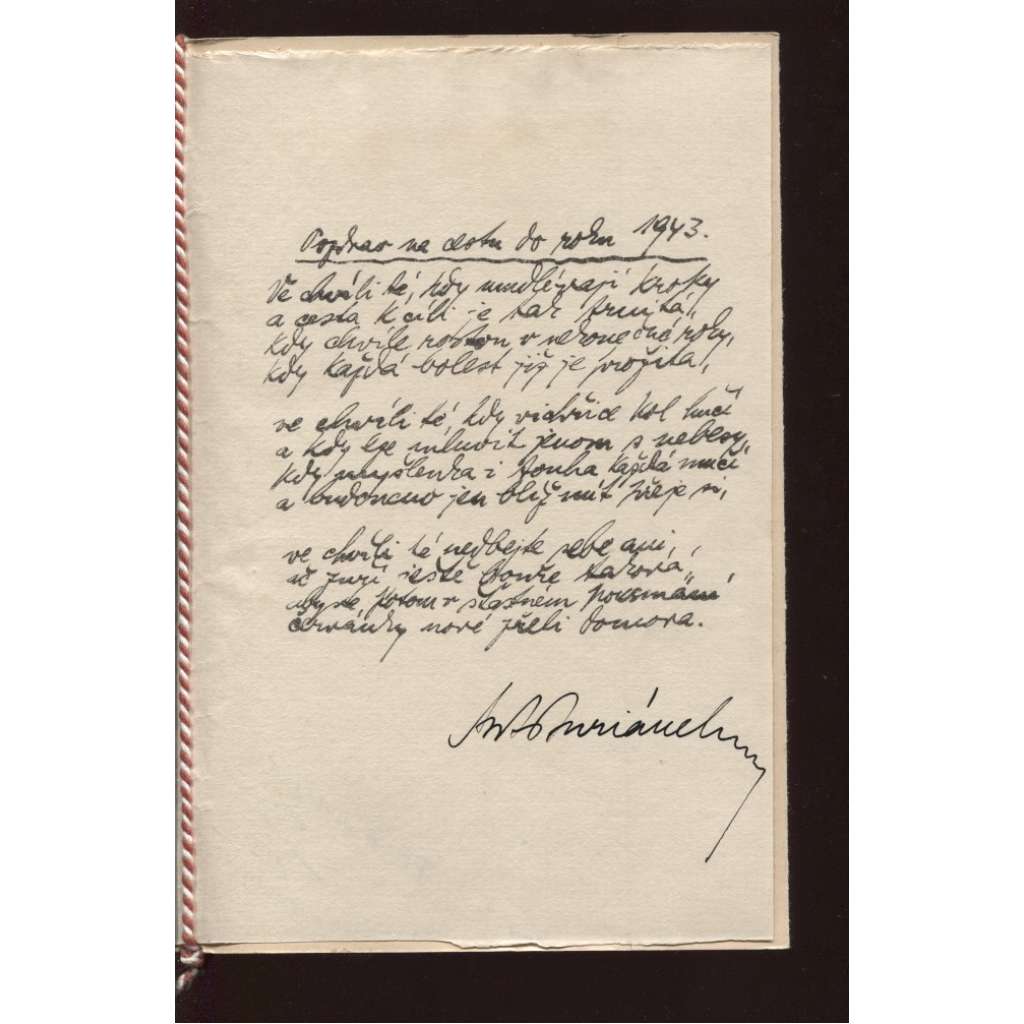 Pozdrav na cestu do roku 1943.
Ve chvíli té, kdy umdlévají kroky
a cesta k cíli je tak trnitá,
kdy chvíle rostou v nekonečné roky,
kdy každá bolest již je prožita,
ve chvíli té, kdy vichřice kol hučí
a kdy lze mluvit jenom s nebesy,
kdy myšlenka i touha každá mučí
a budoucno jen blíž mít přeje si,
ve chvíli té nedbejte sebe ani,
ač zuří ještě bouře taková,
abyste potom v šťastném pousmání
červánky nové zřeli domova.